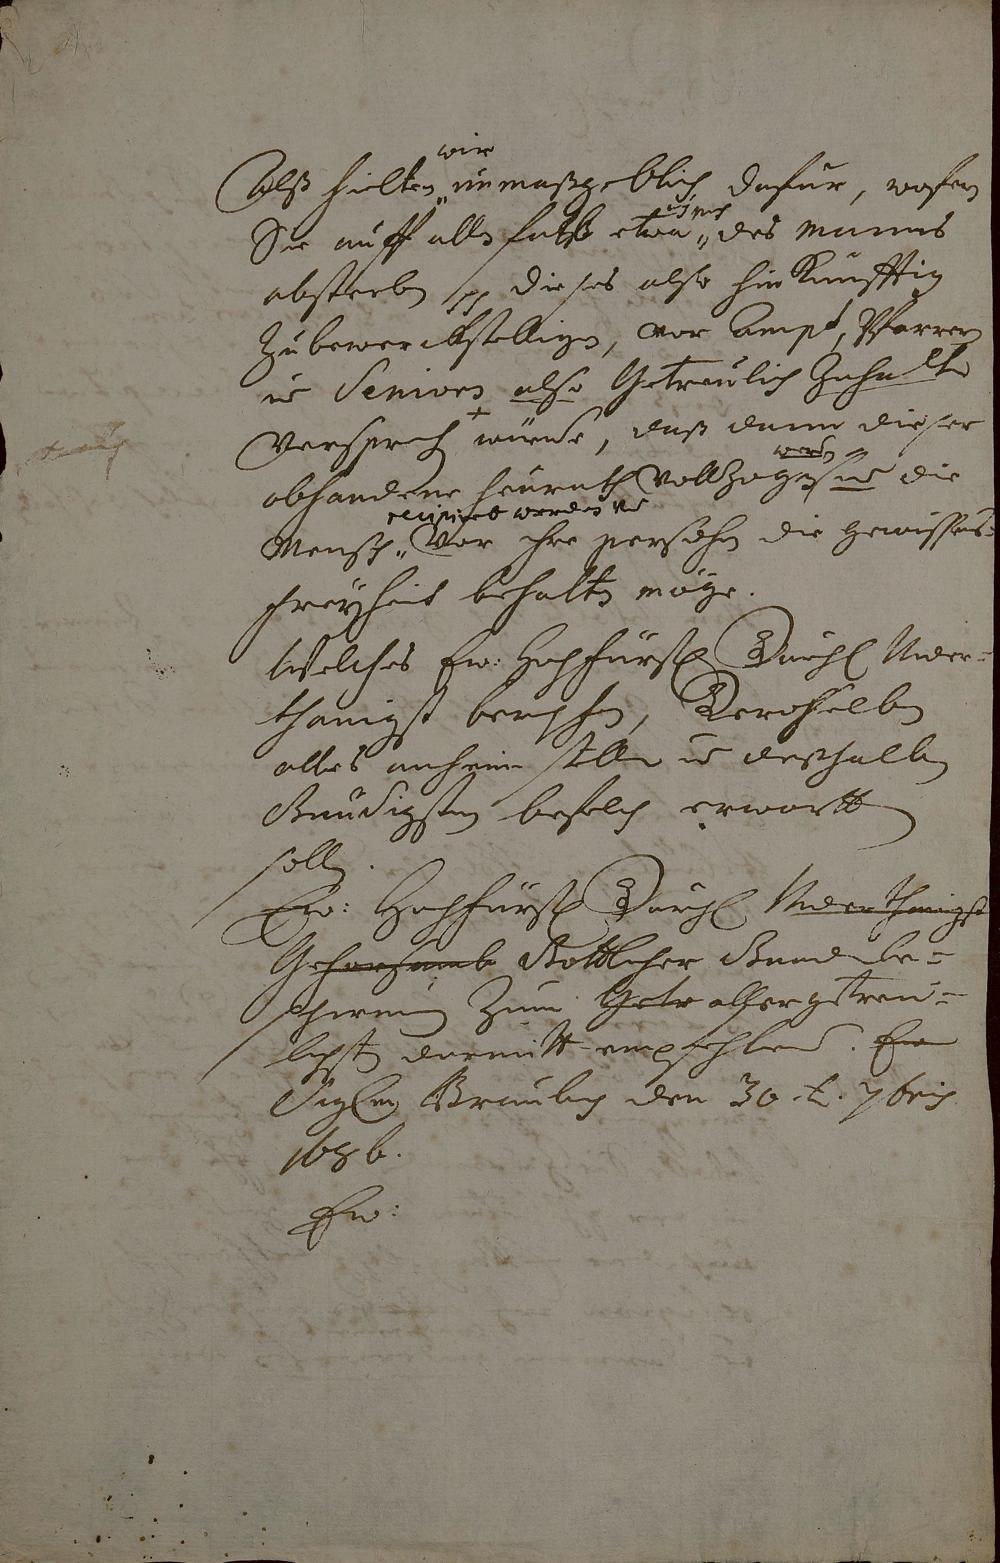 wir
Alß hielten unmaßgeblich dafür, wofern
Sie auff allen fall etwa des manns
absterben pp dieses also hinkünfftig
Zubewerckstelligen, vor Ampt, Pfarrern
u Senioren also Getreulich Zuhalten
versprech würde, daß dann dieser
werden
obhandene heurath vollzogen u die
recipirt werden u
Mensch vor ihre persohn die gewissens=
freyheit behalten möge.
Welches Ew: Hochfürstl Durchl Unter=
thänigst berichten, Deroselben
alles anheim stellen u deßhalben
Gnädigsten befelch erwartten
sollen.
Ew: Hochfürstl Durchl Unterthänigst
Gehorsamb Göttlicher Gnaden be=
schirmung Zum Getr allergetreu=
lichst darmitt empfehlend. Ew
Sigln Braubach den 30.t. 7bris
1686.
Ew: